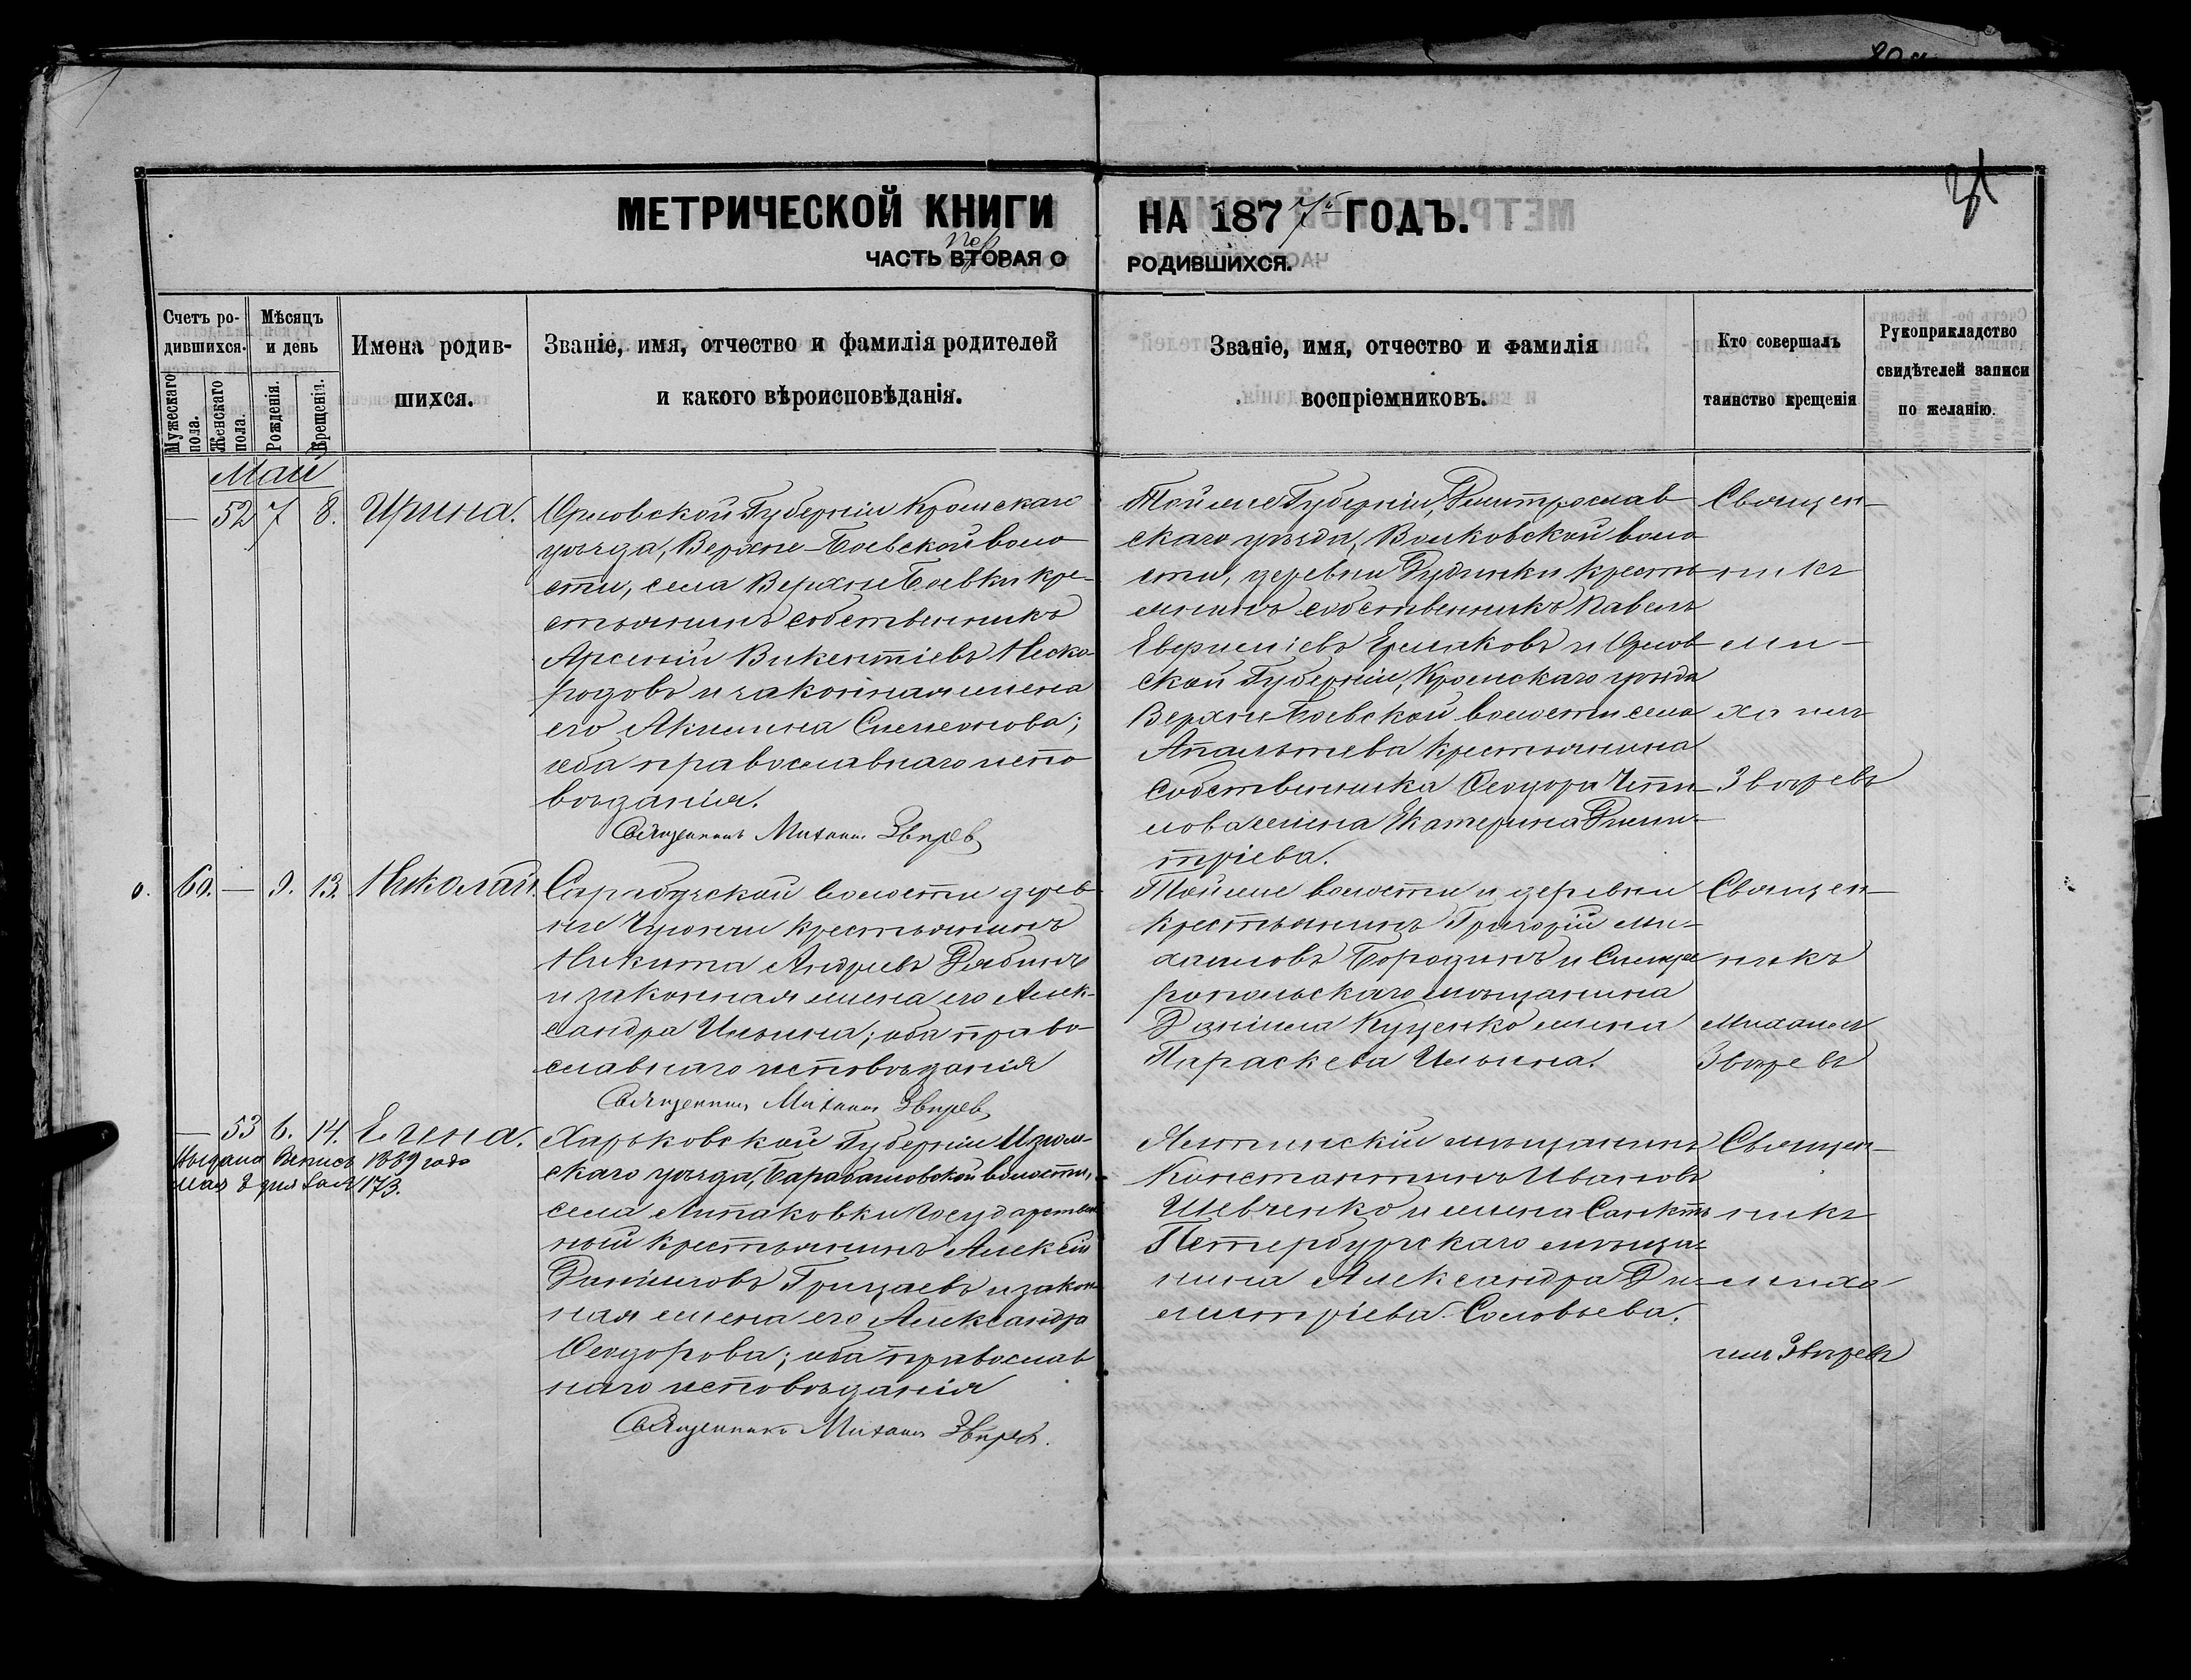 МЕТРИЧЕСКОЙ КНИГИ НА 1877й ГОДЪ.
пер
ЧАСТЬ ВТОРАЯ О РОДИВШИХСЯ.
Счетъ родившихся.
Мужескаго пола.
Женскаго пола.
Мѣсяцъ и день
Рожденія.
Крещенія.
Имена родившихся.
Званіе, имя, отчество и фамилія родителей
и какого вѣроисповѣданія.
Званіе, имя, отчество и фамилія
воспріемниковъ.
Кто совершалъ
таинство крещенія
Рукоприкладство
свидѣтелей записи
по желанію.
Май
— 52 7 8. Ирина.
Орловской Губерніи Кромскаго
уѣзда, Верхне-Боевской воло
сти, села Верхне Боевки кре-
стьянинъ собственникъ
Арсеній Викентіевъ Неско-
родовъ и законная жена
его Акилина Симеонова;
оба православнаго испо
вѣданія.
Священникъ Михаилъ Звѣревъ
Той же Губерніи, Дмитрослав
скаго уѣзда, Волковской воло
сти, деревни Рудинки кресть
янинъ собственникъ Павелъ
Ермаковъ и Орлов
ской Губерніи, Кромскаго уѣзда
Верхне Боевской волости села
крестьянина
собственника Ѳеодора
жена Екатерина Дми
тріева.
Священ-
никъ
Ми-
хаилъ
Звѣревъ
о. 60. — 9. 13. Николай.
волости дерев
ни крестьянинъ
Никита Андреевъ Рябинъ
и законная жена его Алек-
сандра Ильина; оба право-
славнаго исповѣданія
Священникъ Михаилъ Звѣревъ
Той же волости и деревни
крестьянинъ Григорій Ми-
хаиловъ Бородинъ и Симфе
ропольскаго мѣщанина
Даніила Куценко жена
Параскева Ильина.
Священ
никъ
Михаилъ
Звѣревъ
— 53 6. 14. Елена.
Выдана Выпись 1889 года
Мая 8 дня за № 173.
Харьковской Губерніи Изюм-
скаго уѣзда, Барабашовской волости,
села государствен
ный крестьянинъ Алексѣй
Даніиловъ Грицаевъ и закон-
ная жена его Александра
Ѳеодорова; оба православ
наго исповѣданія
Священникъ Михаилъ Звѣревъ.
мѣщанинъ
Константинъ Ивановъ
Шевченко и жена Санктъ
Петербургскаго мѣща-
нина Александра Ди-
митріева Соловьева.
Священ-
никъ
Миха
илъ Звѣревъ